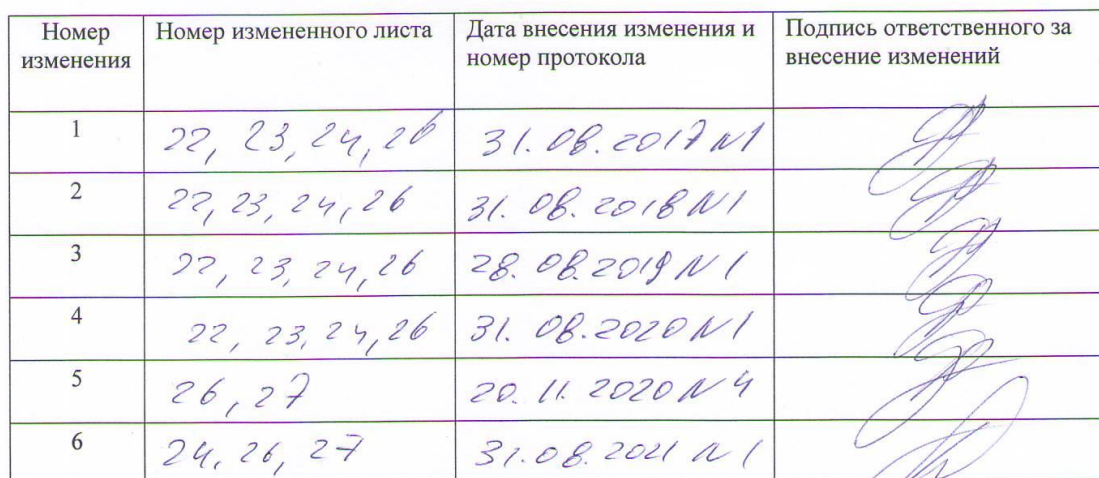 Номер изменения
Номер измененного листа
Дата внесения изменения и номер протокола
Подпись ответственного за внесение изменений
1
22, 23, 24, 26
31.08.2017 N1
2
22, 23, 24, 26
31.08.2018 N1
3
22, 23, 24, 26
28.08.2019 N1
4
22, 23, 24, 26
31.08.2020 N1
5
26, 27
20.11.2020 N4
6
24, 26, 27
31.08.2021 N1